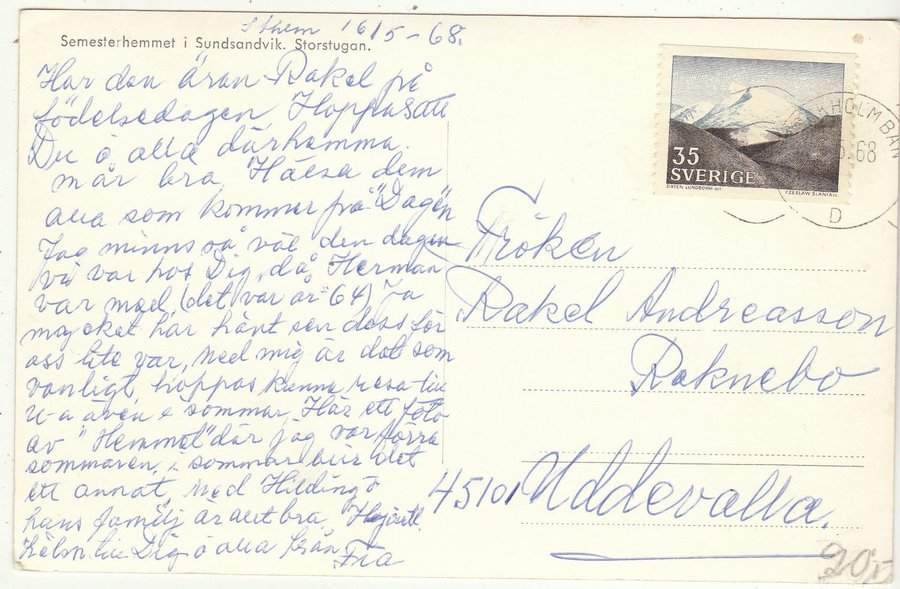 Sthem 16/5-68.
Semesterhemmet i Sundsandvik. Storstugan.
Har den äran Rakel på
födelsedagen, Hoppas att
Du o. alla därhemma
mår bra, Hälsa dem
alla som kommer på "Dagen"
Jag minns så väl den dagen
vi var hos Dig, då Herman
var med (det var år 64) Ja
mycket har hänt sen dess för
oss lite var, Med mig är det som
vanligt, hoppas kunna resa till
U-a även i sommar, Här ett foto
av "Hemmet" där jag var förra
sommaren, i sommar blir det
ett annat, Med Hilding o
hans familj är allt bra, Hjärtl.
hälsn till Dig o alla från
35
SVERIGE
SIXTEN LUNDBOHM del.
CZESLAW SLANIA sc.
STOCKHOLM BAN
68
D
Fröken
Rakel Andreasson
Raknebo
45101 Uddevalla.
20,-